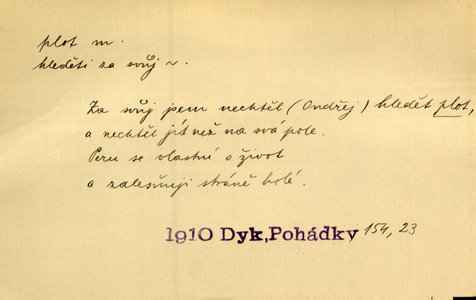 plot m.
hleděti za svůj ~.
Za svůj jsem nechtěl (Ondřej) hledět plot,
a nechtěl jít než na svá pole.
Peru se vlastní o život
a zalesňuji stráně holé.
1910 Dyk, Pohádky 154, 23